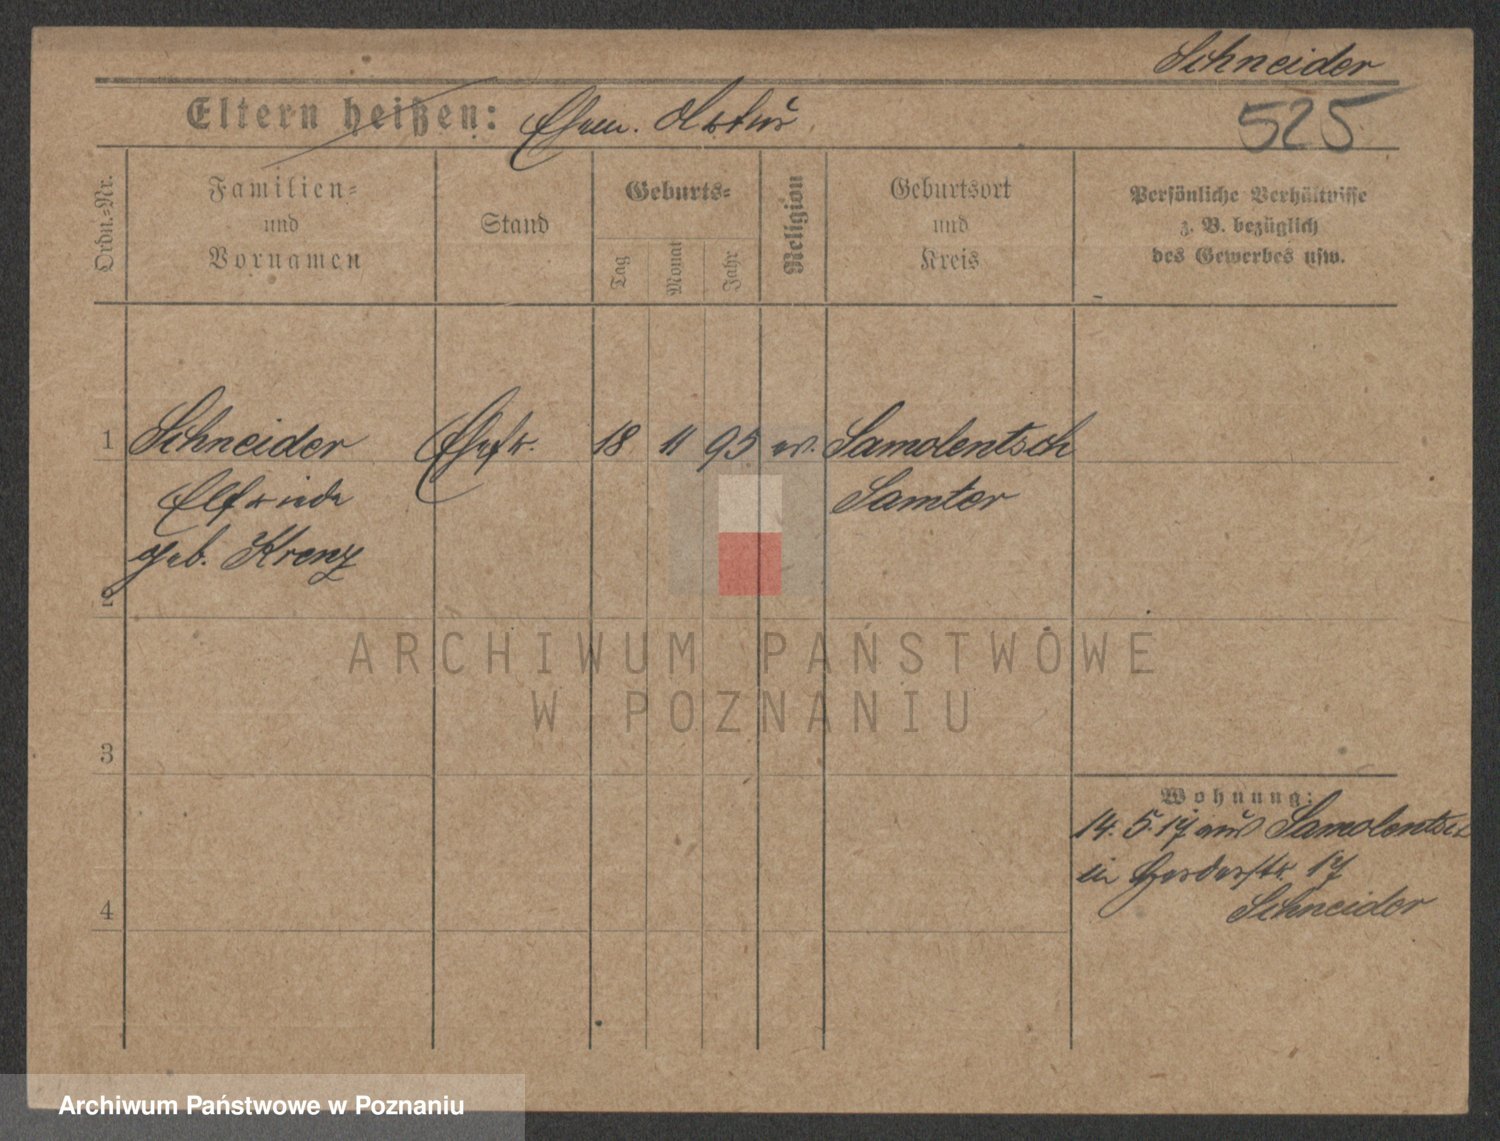 Schneider
Eltern heißen: Ehem. Artur
525
Ordn.-Nr.
Familien-
und
Vornamen
Stand
Geburts-
Tag
Monat
Jahr
Religion
Geburtsort
und
Kreis
Persönliche Verhältnisse
z. B. bezüglich
des Gewerbes usw.
1 Schneider Ehefr. 18 11 95 ev. Samolentsch
Elfriede Samter
geb. Krenz
2
ARCHIWUM PAŃSTWOWE
W POZNANIU
3
Wohnung:
14. 5. 17 aus Samolentsch
in Herderstr. 17
Schneider
4
Archiwum Państwowe w Poznaniu